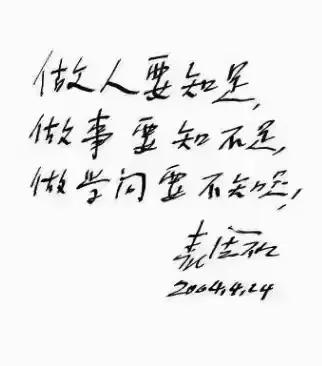 做人要知足,
做事要知不足,
做学问要不知足,
2004.4.24